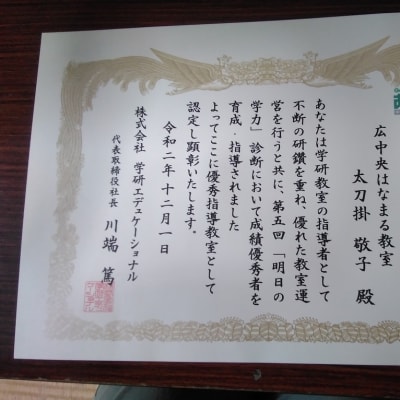 広中央はなまる教室
太刀掛 敬子 殿
あなたは学研教室の指導者として
不断の研鑽を重ね、優れた教室運
営を行うと共に、第五回「明日の
学力」診断において成績優秀者を
育成・指導されました
よってここに優秀指導教室として
認定し顕彰いたします。
令和二年十二月一日
株式会社 学研エデュケーショナル
代表取締役社長 川端 篤